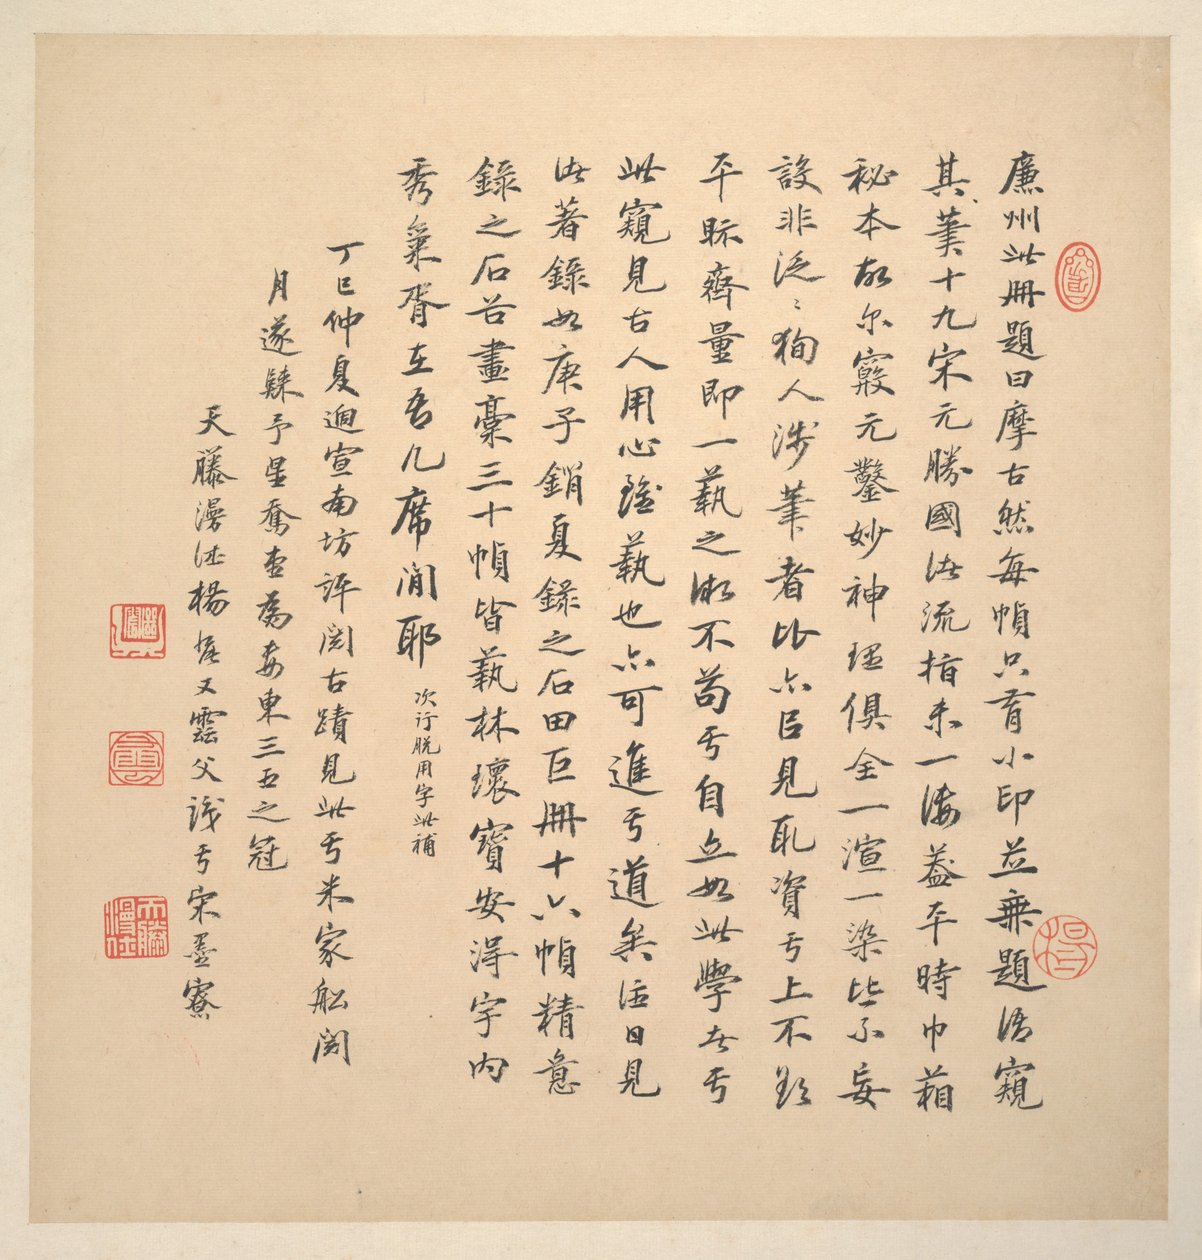 廉州此冊題曰摩古然每幀只有小印並無題語窺
其筆十九宋元勝國法流指未一淆蓋平時巾箱
秘本故爾窾元鑿妙神理俱全一渲一染皆不妄
設非泛泛狥人涉筆者比亦足見取資于上不欺
平眎齊量即一藝之微不苟于自立如此學者于
此窺見古人用心雖藝也亦可進于道矣往日見
法著錄如庚子銷夏錄之石田巨冊十六幀精意
錄之石谷畫稾三十幀皆藝林瓌寶安得宇內
秀氣胥在吾几席間耶 次行脫用字此補
丁巳仲夏過宣南坊評閱古蹟見此于米家船閱
月遂歸予星奮壺為婁東三五之冠
天藤漫士楊又雲父識于宋墨寮